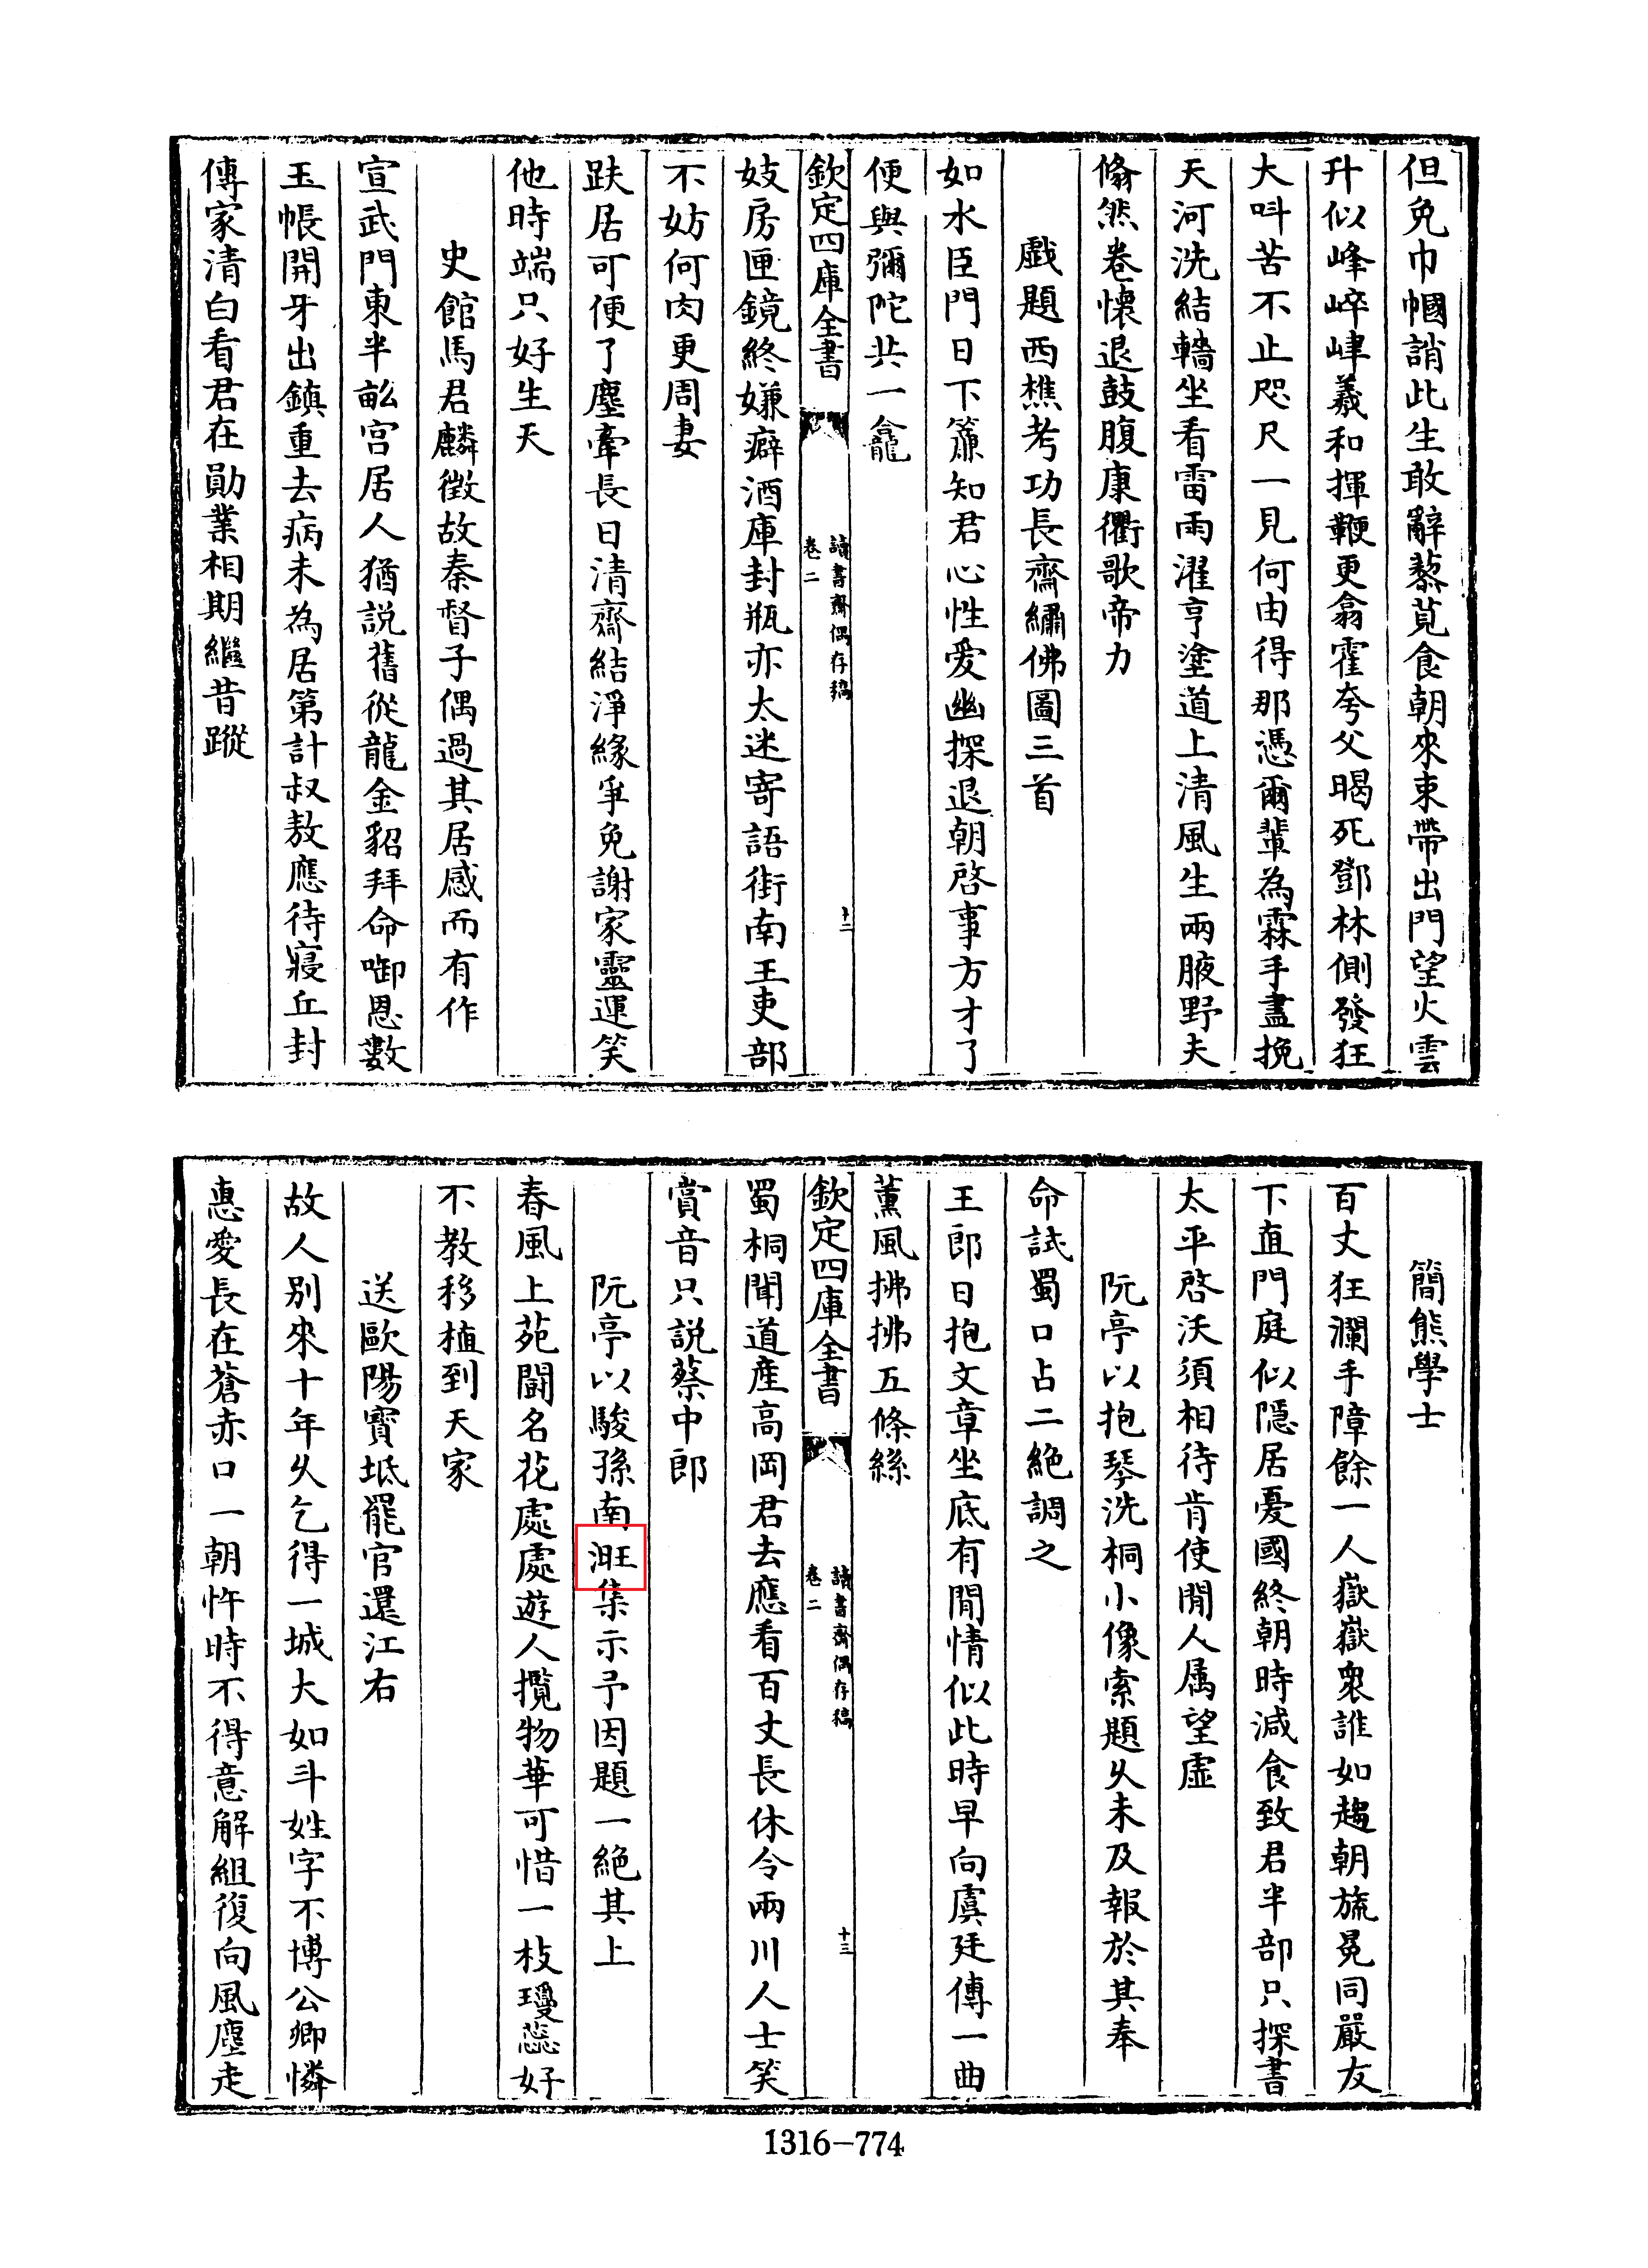 但免巾幗誚此生敢辭藜莧食朝來束帶出門望火雲
升似峰崪嵂羲和揮鞭更翕霍夸父暍死鄧林側發狂
大叫苦不止咫尺一見何由得那憑爾輩為霖手盡挽
天河洗結轖坐看雷雨濯亨塗道上清風生兩腋野夫
翛然卷懷退鼓腹康衢歌帝力
戲題西樵考功長齋繡佛圖三首
如水臣門日下簾知君心性愛幽探退朝啓事方才了
便與彌陀共一龕
欽定四庫全書
讀書齋偶存稿
卷二
十二
妓房匣鏡終嫌癖酒庫封瓶亦太迷寄語街南王吏部
不妨何肉更周妻
趺居可便了塵牽長日清齋結淨緣爭免謝家靈運笑
他時端只好生天
史館馬君麟徵故秦督子偶過其居感而有作
宣武門東半畝宫居人猶説舊從龍金貂拜命啣恩數
玉帳開牙出鎮重去病未為居第計叔敖應待寢丘封
傳家清白看君在勛業相期繼昔蹤
簡熊學士
百丈狂瀾手障餘一人嶽嶽衆誰如趨朝旒冕同嚴友
下直門庭似隱居憂國終朝時減食致君半部只探書
太平啓沃須相待肯使閒人属望虛
阮亭以抱琴洗桐小像索題乆未及報於其奉
命試蜀口占二絶調之
王郎日抱文章坐底有閒情似此時早向虞廷傳一曲
薰風拂拂五條絲
欽定四庫全書
讀書齋偶存稿
卷二
十三
蜀桐聞道産高岡君去應看百丈長休令兩川人士笑
賞音只説蔡中郎
阮亭以駿孫南集示予因題一絶其上
春風上苑鬪名花處處遊人攬物華可惜一枝瓊蕊好
不教移植到天家
送歐陽寶坻罷官還江右
故人别來十年乆乞得一城大如斗姓字不博公卿憐
惠愛長在蒼赤口一朝忤時不得意解組復向風塵走
1316-774